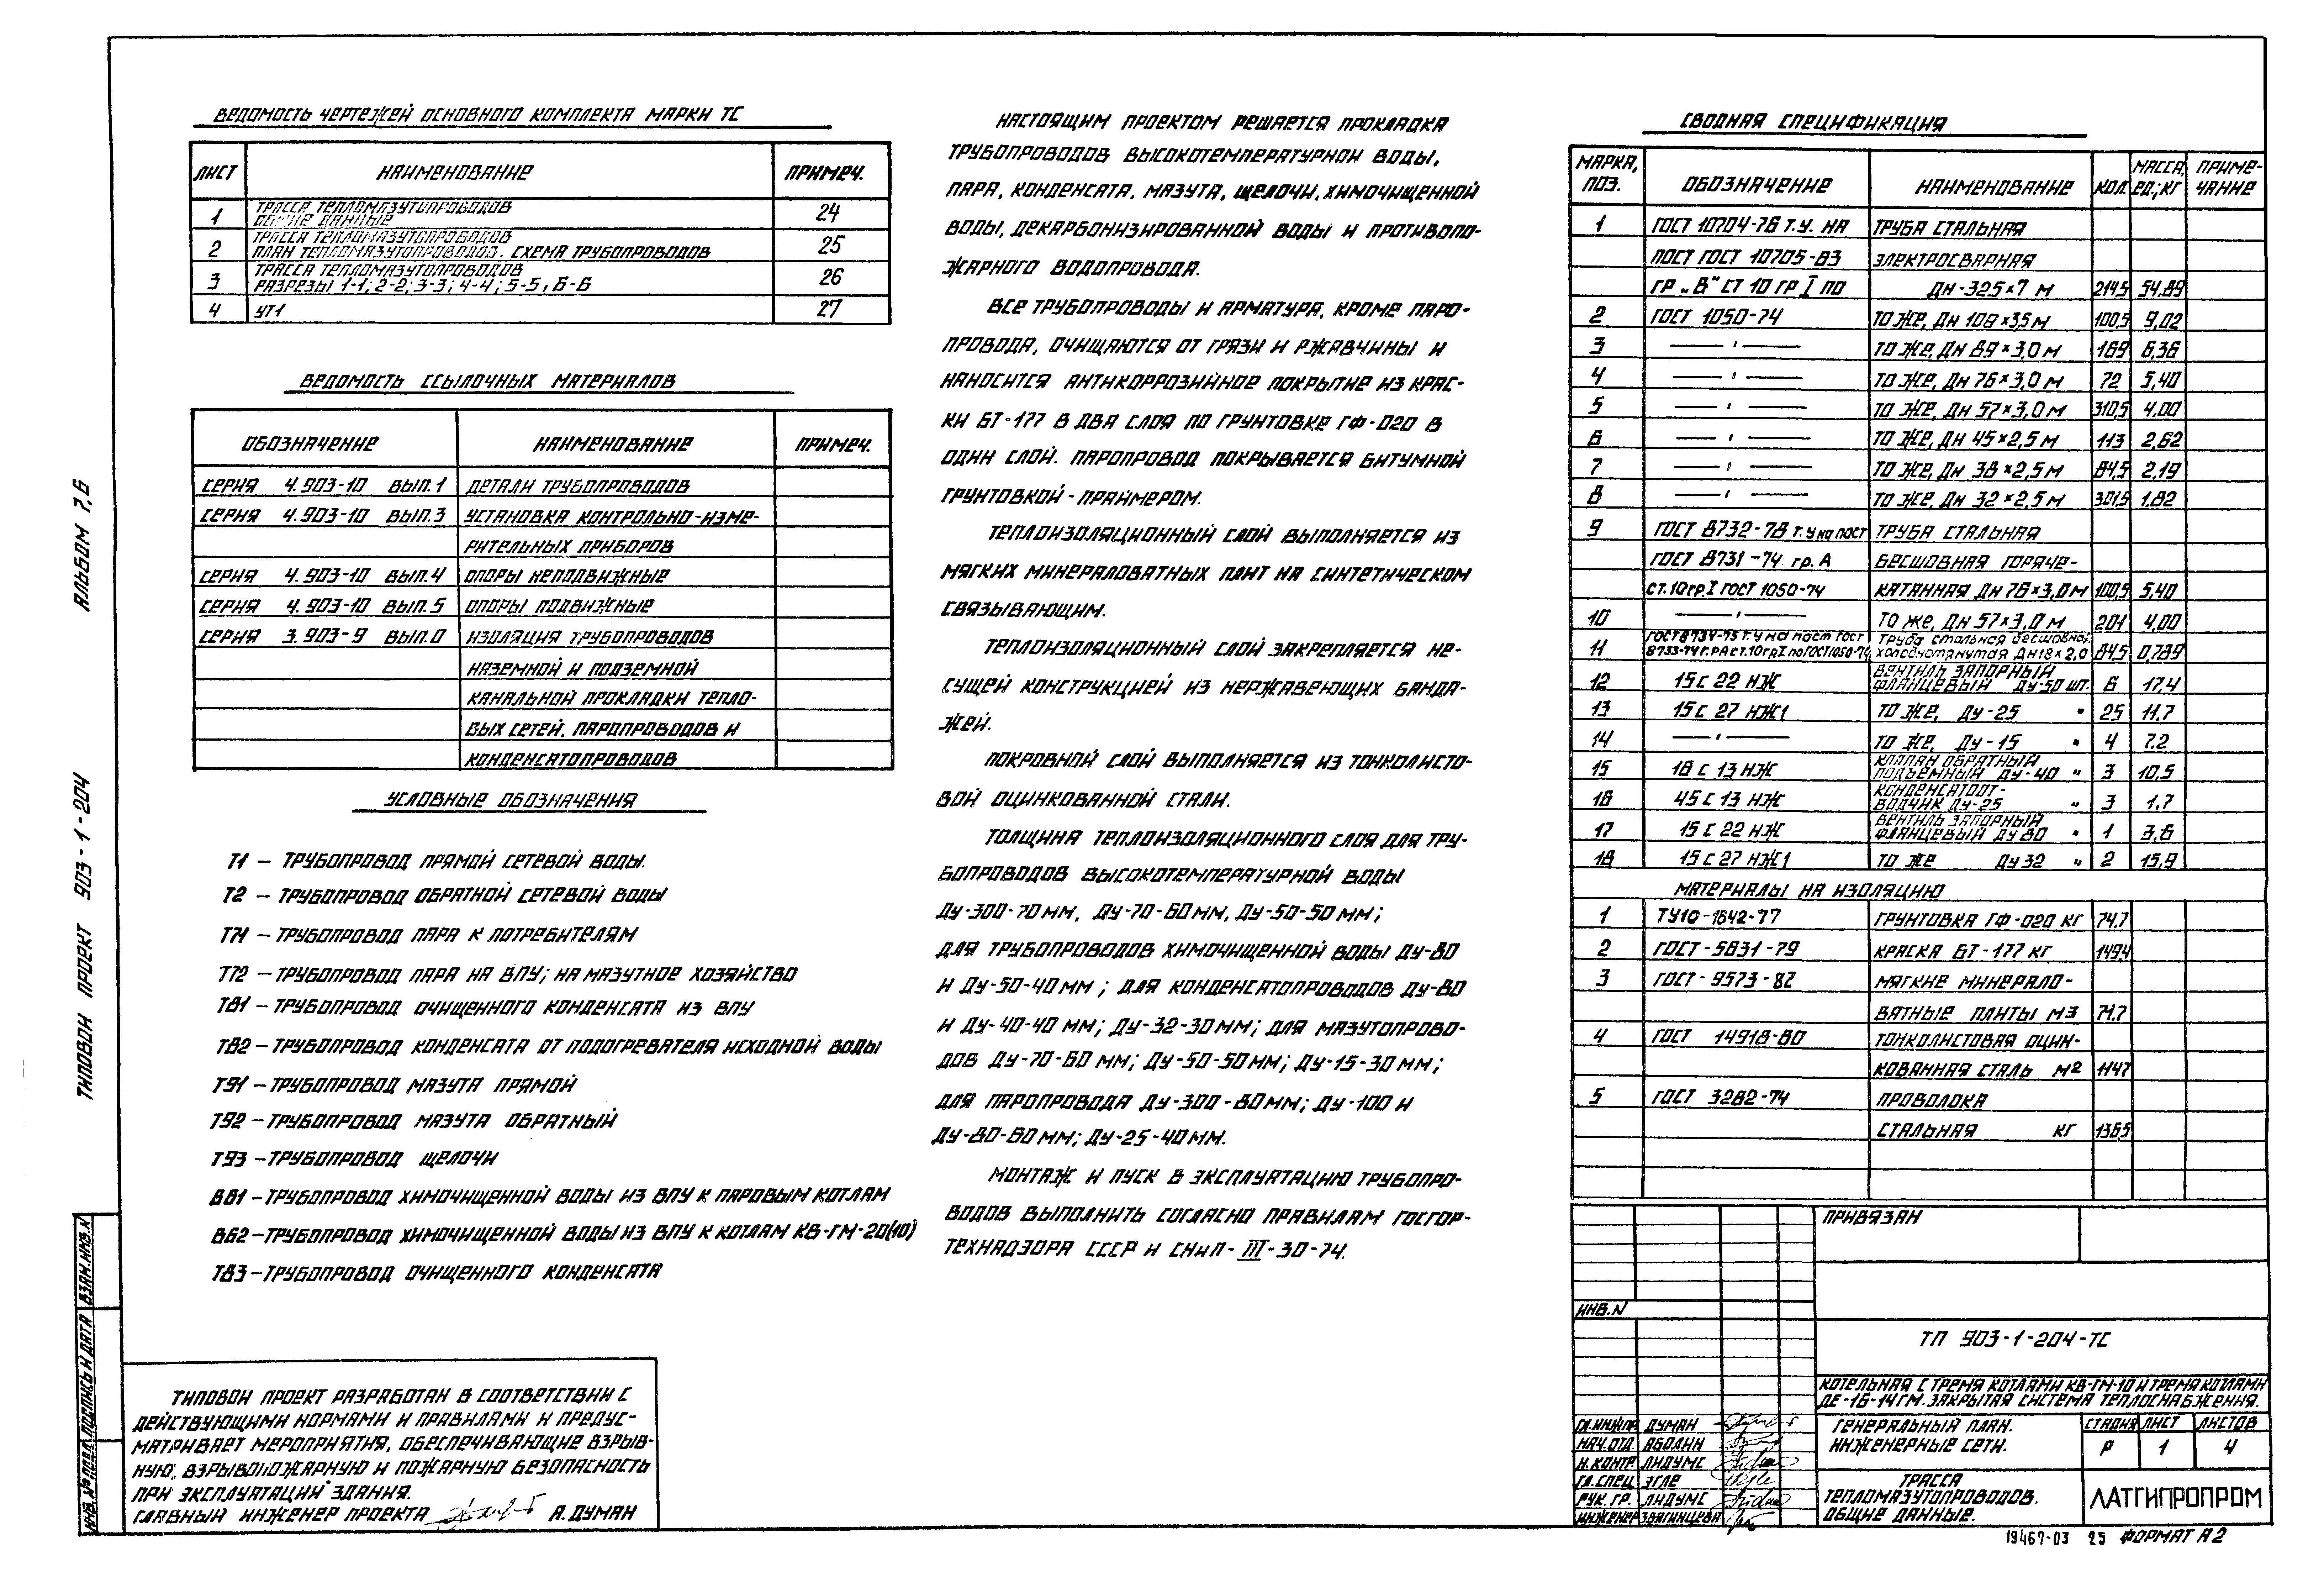 ВЕДОМОСТЬ ЧЕРТЕЖЕЙ ОСНОВНОГО КОМПЛЕКТА МАРКИ ТС
ЛИСТ НАИМЕНОВАНИЕ ПРИМЕЧ.
1 ТРАССА ТЕПЛОМАЗУТОПРОВОДОВ ОБЩИЕ ДАННЫЕ 24
2 ТРАССА ТЕПЛОМАЗУТОПРОВОДОВ ПЛАН ТЕПЛОМАЗУТОПРОВОДОВ. СХЕМА ТРУБОПРОВОДОВ 25
3 ТРАССА ТЕПЛОМАЗУТОПРОВОДОВ РАЗРЕЗЫ 1-1; 2-2; 3-3; 4-4; 5-5; 6-6 26
4 УТ1 27
ВЕДОМОСТЬ ССЫЛОЧНЫХ МАТЕРИАЛОВ
ОБОЗНАЧЕНИЕ НАИМЕНОВАНИЕ ПРИМЕЧ.
СЕРИЯ 4.903-10 ВЫП.1 ДЕТАЛИ ТРУБОПРОВОДОВ
СЕРИЯ 4.903-10 ВЫП.3 УСТАНОВКА КОНТРОЛЬНО-ИЗМЕ-
РИТЕЛЬНЫХ ПРИБОРОВ
СЕРИЯ 4.903-10 ВЫП.4 ОПОРЫ НЕПОДВИЖНЫЕ
СЕРИЯ 4.903-10 ВЫП.5 ОПОРЫ ПОДВИЖНЫЕ
СЕРИЯ 3.903-9 ВЫП.0 ИЗОЛЯЦИЯ ТРУБОПРОВОДОВ
НАЗЕМНОЙ И ПОДЗЕМНОЙ
КАНАЛЬНОЙ ПРОКЛАДКИ ТЕПЛО-
ВЫХ СЕТЕЙ, ПАРОПРОВОДОВ И
КОНДЕНСАТОПРОВОДОВ
УСЛОВНЫЕ ОБОЗНАЧЕНИЯ
Т1 – ТРУБОПРОВОД ПРЯМОЙ СЕТЕВОЙ ВОДЫ.
Т2 – ТРУБОПРОВОД ОБРАТНОЙ СЕТЕВОЙ ВОДЫ
Т71 – ТРУБОПРОВОД ПАРА К ПОТРЕБИТЕЛЯМ
Т72 – ТРУБОПРОВОД ПАРА НА ВПУ; НА МАЗУТНОЕ ХОЗЯЙСТВО
Т81 – ТРУБОПРОВОД ОЧИЩЕННОГО КОНДЕНСАТА ИЗ ВПУ
Т82 – ТРУБОПРОВОД КОНДЕНСАТА ОТ ПОДОГРЕВАТЕЛЯ ИСХОДНОЙ ВОДЫ
Т91 – ТРУБОПРОВОД МАЗУТА ПРЯМОЙ
Т92 – ТРУБОПРОВОД МАЗУТА ОБРАТНЫЙ
Т93 – ТРУБОПРОВОД ЩЕЛОЧИ
В61 – ТРУБОПРОВОД ХИМОЧИЩЕННОЙ ВОДЫ ИЗ ВПУ К ПАРОВЫМ КОТЛАМ
В62 – ТРУБОПРОВОД ХИМОЧИЩЕННОЙ ВОДЫ ИЗ ВПУ К КОТЛАМ КВ-ГМ-20(10)
Т83 – ТРУБОПРОВОД ОЧИЩЕННОГО КОНДЕНСАТА
ТИПОВОЙ ПРОЕКТ РАЗРАБОТАН В СООТВЕТСТВИИ С
ДЕЙСТВУЮЩИМИ НОРМАМИ И ПРАВИЛАМИ И ПРЕДУС-
МАТРИВАЕТ МЕРОПРИЯТИЯ, ОБЕСПЕЧИВАЮЩИЕ ВЗРЫВ-
НУЮ, ВЗРЫВОПОЖАРНУЮ И ПОЖАРНУЮ БЕЗОПАСНОСТЬ
ПРИ ЭКСПЛУАТАЦИИ ЗДАНИЯ.
ГЛАВНЫЙ ИНЖЕНЕР ПРОЕКТА А. ДУМАН
НАСТОЯЩИМ ПРОЕКТОМ РЕШАЕТСЯ ПРОКЛАДКА
ТРУБОПРОВОДОВ ВЫСОКОТЕМПЕРАТУРНОЙ ВОДЫ,
ПАРА, КОНДЕНСАТА, МАЗУТА, ЩЕЛОЧИ, ХИМОЧИЩЕННОЙ
ВОДЫ, ДЕКАРБОНИЗИРОВАННОЙ ВОДЫ И ПРОТИВОПО-
ЖАРНОГО ВОДОПРОВОДА.
ВСЕ ТРУБОПРОВОДЫ И АРМАТУРА, КРОМЕ ПАРО-
ПРОВОДА, ОЧИЩАЮТСЯ ОТ ГРЯЗИ И РЖАВЧИНЫ И
НАНОСИТСЯ АНТИКОРРОЗИЙНОЕ ПОКРЫТИЕ ИЗ КРАС-
КИ БТ-177 В ДВА СЛОЯ ПО ГРУНТОВКЕ ГФ-020 В
ОДИН СЛОЙ. ПАРОПРОВОД ПОКРЫВАЕТСЯ БИТУМНОЙ
ГРУНТОВКОЙ - ПРАЙМЕРОМ.
ТЕПЛОИЗОЛЯЦИОННЫЙ СЛОЙ ВЫПОЛНЯЕТСЯ ИЗ
МЯГКИХ МИНЕРАЛОВАТНЫХ ПЛИТ НА СИНТЕТИЧЕСКОМ
СВЯЗЫВАЮЩИМ.
ТЕПЛОИЗОЛЯЦИОННЫЙ СЛОЙ ЗАКРЕПЛЯЕТСЯ НЕ-
СУЩЕЙ КОНСТРУКЦИЕЙ ИЗ НЕРЖАВЕЮЩИХ БАНДА-
ЖЕЙ.
ПОКРОВНОЙ СЛОЙ ВЫПОЛНЯЕТСЯ ИЗ ТОНКОЛИСТО-
ВОЙ ОЦИНКОВАННОЙ СТАЛИ.
ТОЛЩИНА ТЕПЛОИЗОЛЯЦИОННОГО СЛОЯ ДЛЯ ТРУ-
БОПРОВОДОВ ВЫСОКОТЕМПЕРАТУРНОЙ ВОДЫ
ДУ-300-70ММ, ДУ-70-60ММ, ДУ-50-50ММ;
ДЛЯ ТРУБОПРОВОДОВ ХИМОЧИЩЕННОЙ ВОДЫ ДУ-80
И ДУ-50-40ММ; ДЛЯ КОНДЕНСАТОПРОВОДОВ ДУ-80
И ДУ-40-40 ММ; ДУ-32-30ММ; ДЛЯ МАЗУТОПРОВО-
ДОВ ДУ-70-60 ММ; ДУ-50-50ММ; ДУ-15-30ММ;
ДЛЯ ПАРОПРОВОДА ДУ-300-80ММ; ДУ-100 И
ДУ-80-80ММ; ДУ-25-40ММ.
МОНТАЖ И ПУСК В ЭКСПЛУАТАЦИЮ ТРУБОПРО-
ВОДОВ ВЫПОЛНИТЬ СОГЛАСНО ПРАВИЛАМ ГОСГОР-
ТЕХНАДЗОРА СССР И СНиП-III-30-74.
СВОДНАЯ СПЕЦИФИКАЦИЯ
МАРКА, ПОЗ. ОБОЗНАЧЕНИЕ НАИМЕНОВАНИЕ КОЛ. МАССА ЕД.; КГ ПРИМЕ-ЧАНИЕ
1 ГОСТ 10704-76 Т.У. НА ТРУБА СТАЛЬНАЯ
ПОСТ ГОСТ 10705-83 ЭЛЕКТРОСВАРНАЯ
ГР „В" СТ 10 ГР I ПО ДН-325×7 М 2145 54,89
2 ГОСТ 1050-74 ТО ЖЕ, ДН 108×3,5 М 100,5 9,02
3 —"— ТО ЖЕ, ДН 89×3,0 М 169 6,36
4 —"— ТО ЖЕ, ДН 76×3,0 М 72 5,40
5 —"— ТО ЖЕ, ДН 57×3,0 М 310,5 4.00
6 —"— ТО ЖЕ, ДН 45×2,5 М 113 2,62
7 —"— ТО ЖЕ, ДН 38×2,5 М 84,5 2,19
8 —"— ТО ЖЕ, ДН 32×2,5 М 301,5 1.82
9 ГОСТ 8732-78 Т.У на пост ТРУБА СТАЛЬНАЯ
ГОСТ 8731-74 гр. А БЕСШОВНАЯ ГОРЯЧЕ-
СТ. 10 гр. I ГОСТ 1050-74 КАТАННАЯ ДН 76×3,0 М 100,5 5,40
10 —"— ТО же, ДН 57×3,0 М 201 4,00
11 ГОСТ 8734-75 Т.У на пост ГОСТ Труба стальная бесшовная
8733-74 Г.Р А ст. 10 гр I по ГОСТ 1050-74 холоднотянутая ДН 18×2,0 84,5 0,789
12 15 с 22 НЖ ВЕНТИЛЬ ЗАПОРНЫЙ ФЛАНЦЕВЫЙ ДУ-50 шт. 6 17,4
13 15 с 27 НЖ1 ТО ЖЕ, ДУ-25 " 25 11.7
14 —"— ТО ЖЕ, ДУ-15 " 4 7.2
15 16 с 13 НЖ КЛАПАН ОБРАТНЫЙ ПОДЪЕМНЫЙ ДУ-40 " 3 10,5
16 45 с 13 НЖ КОНДЕНСАТООТ-ВОДЧИК ДУ-25 " 3 1,7
17 15 с 22 НЖ ВЕНТИЛЬ ЗАПОРНЫЙ ФЛАНЦЕВЫЙ ДУ 80 " 1
18 15 с 27 НЖ1 ТО ЖЕ ДУ 32 " 2 15,9
МАТЕРИАЛЫ НА ИЗОЛЯЦИЮ
1 ТУ10-1642-77 ГРУНТОВКА ГФ-020 КГ 74.7
2 ГОСТ-5631-79 КРАСКА БТ-177 КГ 149,4
3 ГОСТ-9573-82 МЯГКИЕ МИНЕРАЛО-
ВАТНЫЕ ПЛИТЫ М3 71.7
4 ГОСТ 14918-80 ТОНКОЛИСТОВАЯ ОЦИН-
КОВАННАЯ СТАЛЬ М2 1147
5 ГОСТ 3282-74 ПРОВОЛОКА
СТАЛЬНАЯ КГ 136,5
ПРИВЯЗАН
ИНВ. N
ТП 903-1-204-ТС
КОТЕЛЬНАЯ С ТРЕМЯ КОТЛАМИ КВ-ГМ-10 И ТРЕМЯ КОТЛАМИ
ДЕ-16-14ГМ. ЗАКРЫТАЯ СИСТЕМА ТЕПЛОСНАБЖЕНИЯ.
ГЛ.ИНЖ.ПР. ДУМАН
НАЧ.ОТД. АБОЛИН
Н.КОНТР. ЛИДУМС
ГЛ.СПЕЦ. ЭГЛЕ
РУК. ГР. ЛИДУМС
ИНЖЕНЕР ЗВЯГИНЦЕВА
ГЕНЕРАЛЬНЫЙ ПЛАН.
ИНЖЕНЕРНЫЕ СЕТИ.
СТАДИЯ ЛИСТ ЛИСТОВ
Р 1 4
ТРАССА
ТЕПЛОМАЗУТОПРОВОДОВ.
ОБЩИЕ ДАННЫЕ.
ЛАТГИПРОПРОМ
19467-03 25 ФОРМАТ А2
ТИПОВОЙ ПРОЕКТ 903-1-204 АЛЬБОМ 7,6
ИНВ. № ПОДЛ. ПОДПИСЬ И ДАТА ВЗАМ. ИНВ. N